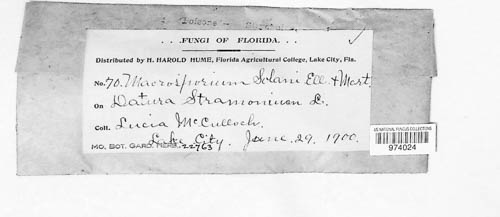 ..FUNGI OF FLORIDA...
Distributed by H. HAROLD HUME, Florida Agricultural College, Lake City, Fla.
No. 70. Macrosporium Solani Ell. & Mart.
On Datura Stramonium L.
Coll. Lucia McCulloch.
Lake City. June 29, 1900.
MO. BOT. GARD. HERB. 22763
US NATIONAL FUNGUS COLLECTIONS
974024